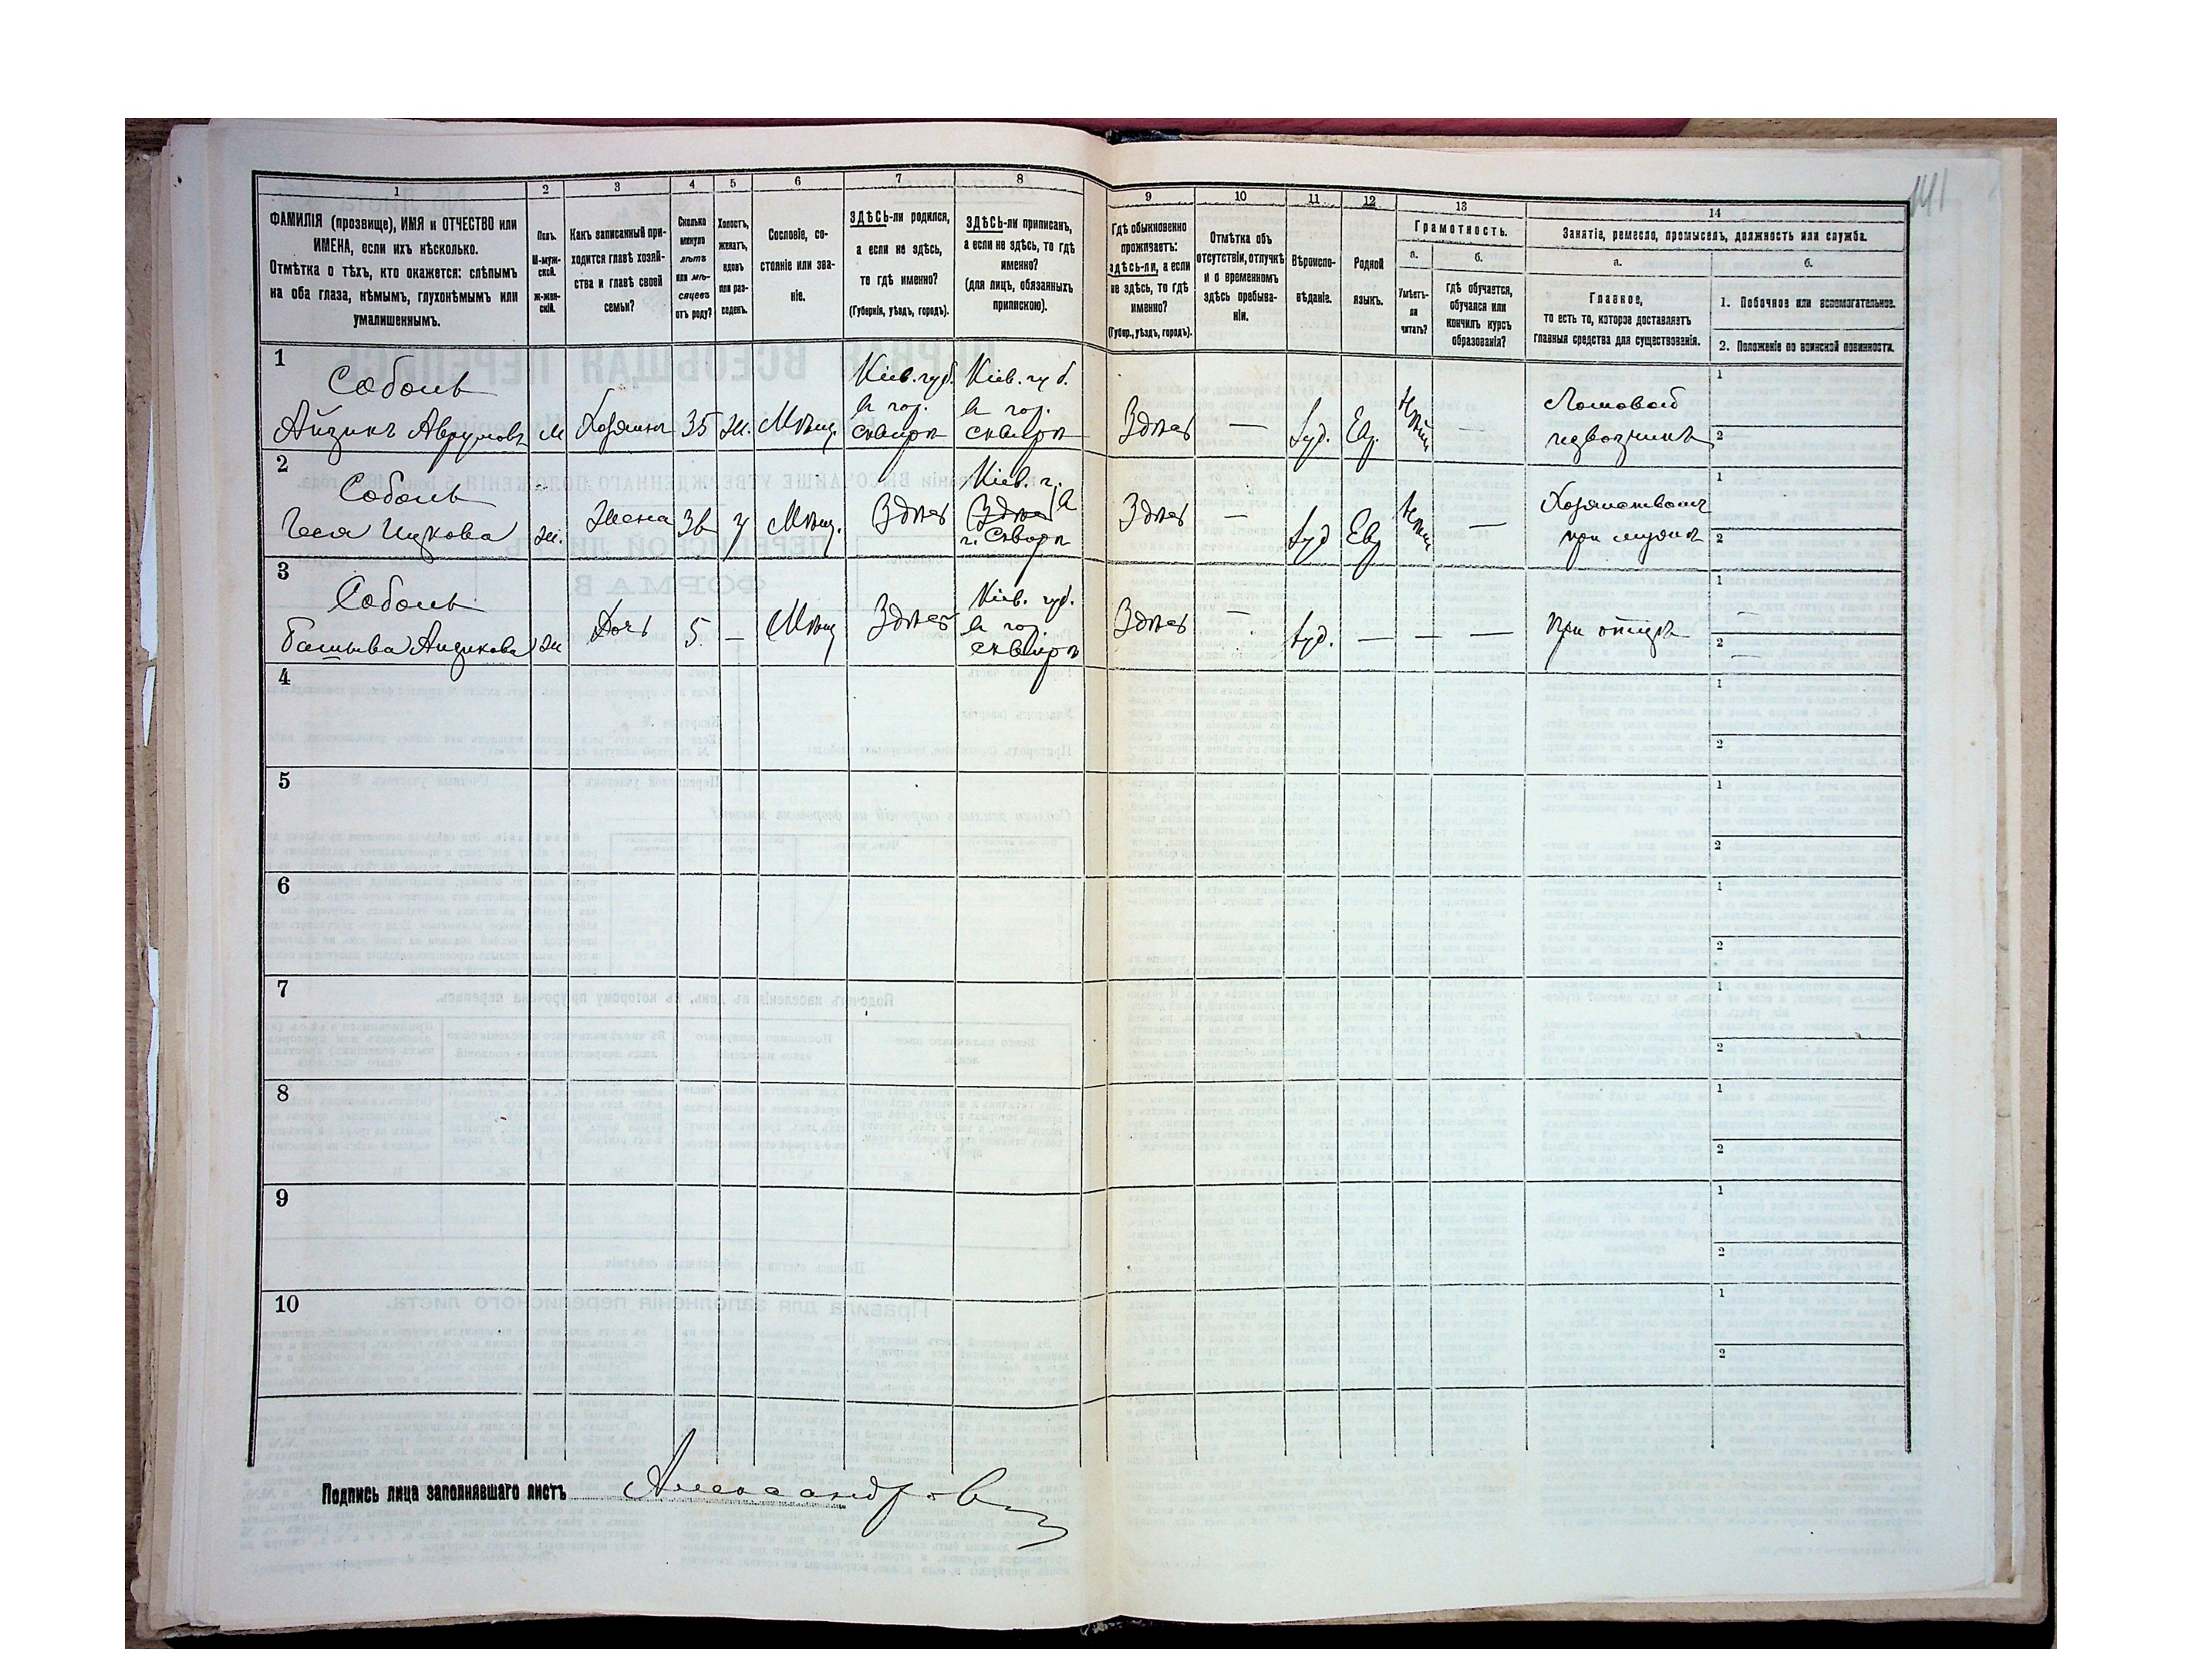 141
1 2 3 4 5 6 7 8 9 10 11 12 13 14
ФАМИЛІЯ (прозвище), ИМЯ и ОТЧЕСТВО или
ИМЕНА, если ихъ нѣсколько.
Отмѣтка о тѣхъ, кто окажется: слѣпымъ
на оба глаза, нѣмымъ, глухонѣмымъ или
умалишеннымъ.
Полъ.
М-муж-
ской.
ж-жен-
скій.
Какъ записанный при-
ходится главѣ хозяй-
ства и главѣ своей
семьи?
Сколько
минуло
лѣтъ
или мѣ-
сяцевъ
отъ роду?
Холостъ,
женатъ,
вдовъ
или раз-
веденъ.
Сословіе, со-
стояніе или зва-
ніе.
ЗДѢСЬ-ли родился,
а если не здѣсь,
то гдѣ именно?
(Губернія, уѣздъ, городъ).
ЗДѢСЬ-ли приписанъ,
а если не здѣсь, то гдѣ
именно?
(для лицъ, обязанныхъ
припискою).
Гдѣ обыкновенно
проживаетъ:
здѣсь-ли, а если
не здѣсь, то гдѣ
именно?
(Губер., уѣздъ, городъ).
Отмѣтка объ
отсутствіи, отлучкѣ
и о временномъ
здѣсь пребыва-
ніи.
Вѣроиспо-
вѣданіе.
Родной
языкъ.
Грамотность.
а.
Умѣетъ-
ли
читать?
б.
гдѣ обучается,
обучался или
кончилъ курсъ
образованія?
Занятіе, ремесло, промыселъ, должность или служба.
а.
Главное,
то есть то, которое доставляетъ
главныя средства для существованія.
б.
1. Побочное или вспомогательное.
2. Положеніе по воинской повинности.
1
Соболь
Айзикъ Аврумовъ
М
Хозяинъ
35
ж.
Мѣщ.
Кіев. губ.
в гор.
Сквирѣ
Кіев. губ.
в гор.
Сквирѣ
Здѣсь
—
Іуд.
Евр.
—
Ломовой
извозчикъ
1
2
2
Соболь
Ицкова
ж.
Жена
Мѣщ.
Здѣсь
Кіев. г.
в
Здѣсь
г. Сквирѣ
Здѣсь
—
Іуд
Евр
—
при мужѣ
1
2
3
Соболь
Айзикова
ж
Дочь
5.
—
Мѣщ
Здѣсь
Кіев. губ.
в гор
Сквирѣ
Здѣсь
—
Іуд.
— — —
При отцѣ
1 —
2 —
4
1
2
5
1
2
6
1
2
7
1
2
8
1
2
9
1
2
10
1
2
Подпись лица заполнявшаго листъ Александров